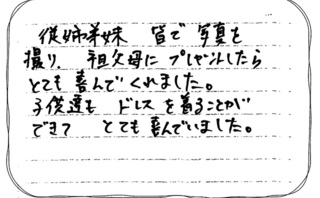 従姉弟妹 皆で 写真を
撮り、 祖父母に プレゼントしたら
とても 喜んでくれました。
子供達も ドレスを着ることが
できて とても喜んでいました。